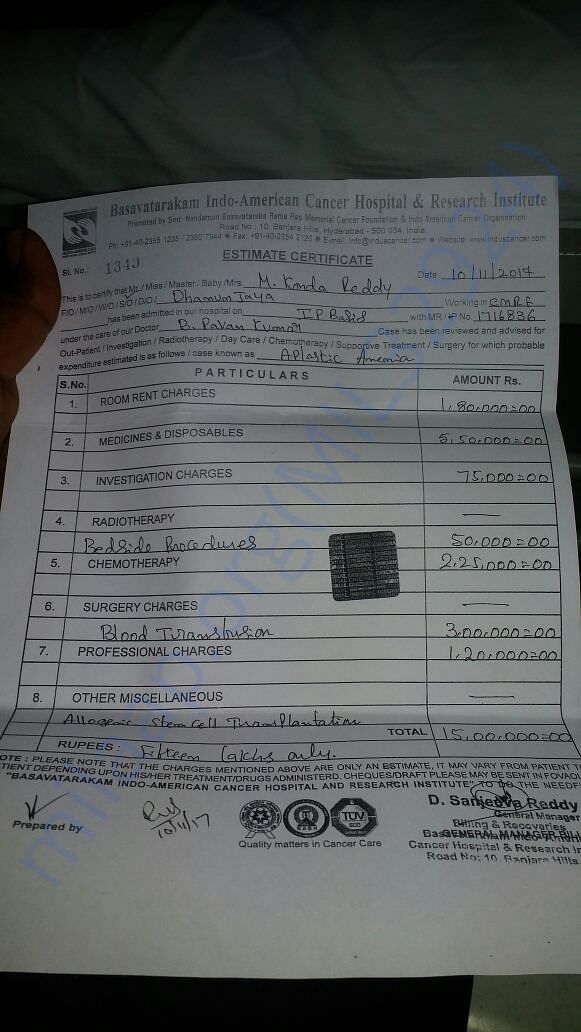 Basavatarakam Indo-American Cancer Hospital & Research Institute
Promoted by Smt. Nandamuri Basavataraka Rama Rao Memorial Cancer Foundation & Indo American Cancer Organisation
Road No : 10, Banjara Hills, Hyderabad - 500 034, India.
Ph: +91-40-2355 1235 / 2380 7944 Fax: +91-40-2354 2120 E.mail: info@induscancer.com Website: www.induscancer.com
ESTIMATE CERTIFICATE
Sl. No.: 1349
Date 10/11/2017
This is to certify that Mr. / Miss / Master / Baby / Mrs. M. Konda Reddy
F/O / M/O / W/O / S/O / D/O / Dhanunjaya Working in CMRF
has been admitted in our hospital on IP Basis with MR / IP No. 1716836
under the care of our Doctor B. Pavan Kumar Case has been reviewed and advised for
Out-Patient / Investigation / Radiotherapy / Day Care / Chemotherapy / Supportive Treatment / Surgery for which probable
expenditure estimated is as follows / case known as Aplastic Anemia
S.No. PARTICULARS AMOUNT Rs.
1. ROOM RENT CHARGES 1,80,000=00
2. MEDICINES & DISPOSABLES 5,50,000=00
3. INVESTIGATION CHARGES 75,000=00
4. RADIOTHERAPY —
Bedside Procedures 50,000=00
5. CHEMOTHERAPY 2,25,000=00
6. SURGERY CHARGES —
Blood Transfusion 3,00,000=00
7. PROFESSIONAL CHARGES 1,20,000=00
8. OTHER MISCELLANEOUS —
Allogenic Stem Cell Transplantation
TOTAL 15,00,000=00
RUPEES : Fifteen Lakhs only.
OTE : PLEASE NOTE THAT THE CHARGES MENTIONED ABOVE ARE ONLY AN ESTIMATE, IT MAY VARY FROM PATIENT T
TIENT DEPENDING UPON HIS/HER TREATMENT/DRUGS ADMINISTERD. CHEQUES/DRAFT PLEASE MAY BE SENT IN FOVAO
"BASAVATARAKAM INDO-AMERICAN CANCER HOSPITAL AND RESEARCH INSTITUTE" TO DO THE NEEDF
Prepared by
10/11/17
TUV
Quality matters in Cancer Care
D. Sanjeeva Reddy
General Manager
Billing & Recoveries
GENERAL MANAGER BILL
Cancer Hospital & Research In
Road No: 10, Banjara Hills,